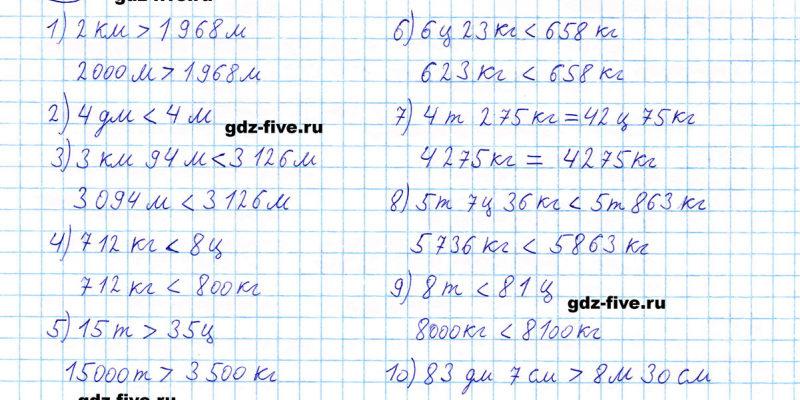 1) 2 км > 1968 м
2000 м > 1968 м
2) 4 дм < 4 м
gdz-five.ru
3) 3 км 94 м < 3126 м
3094 м < 3126 м
4) 712 кг < 8 ц
712 кг < 800 кг
5) 15 т > 35 ц
15000 т > 3500 кг
6) 6 ц 23 кг < 658 кг
623 кг < 658 кг
7) 4 т 275 кг = 42 ц 75 кг
4275 кг = 4275 кг
8) 5 т 7 ц 36 кг < 5 т 863 кг
5736 кг < 5863 кг
9) 8 т < 81 ц
gdz-five.ru
8000 кг < 8100 кг
10) 83 дм 7 см > 8 м 30 см